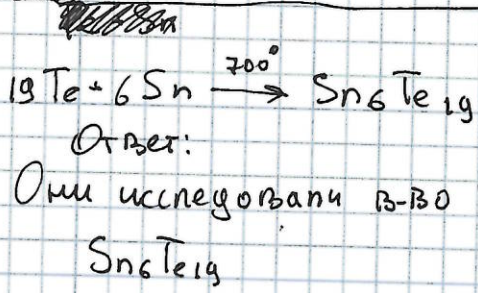 19 Te + 6 Sn 700° → Sn₆Te₁₉
Ответ:
Они исследовали в-во
Sn₆Te₁₉